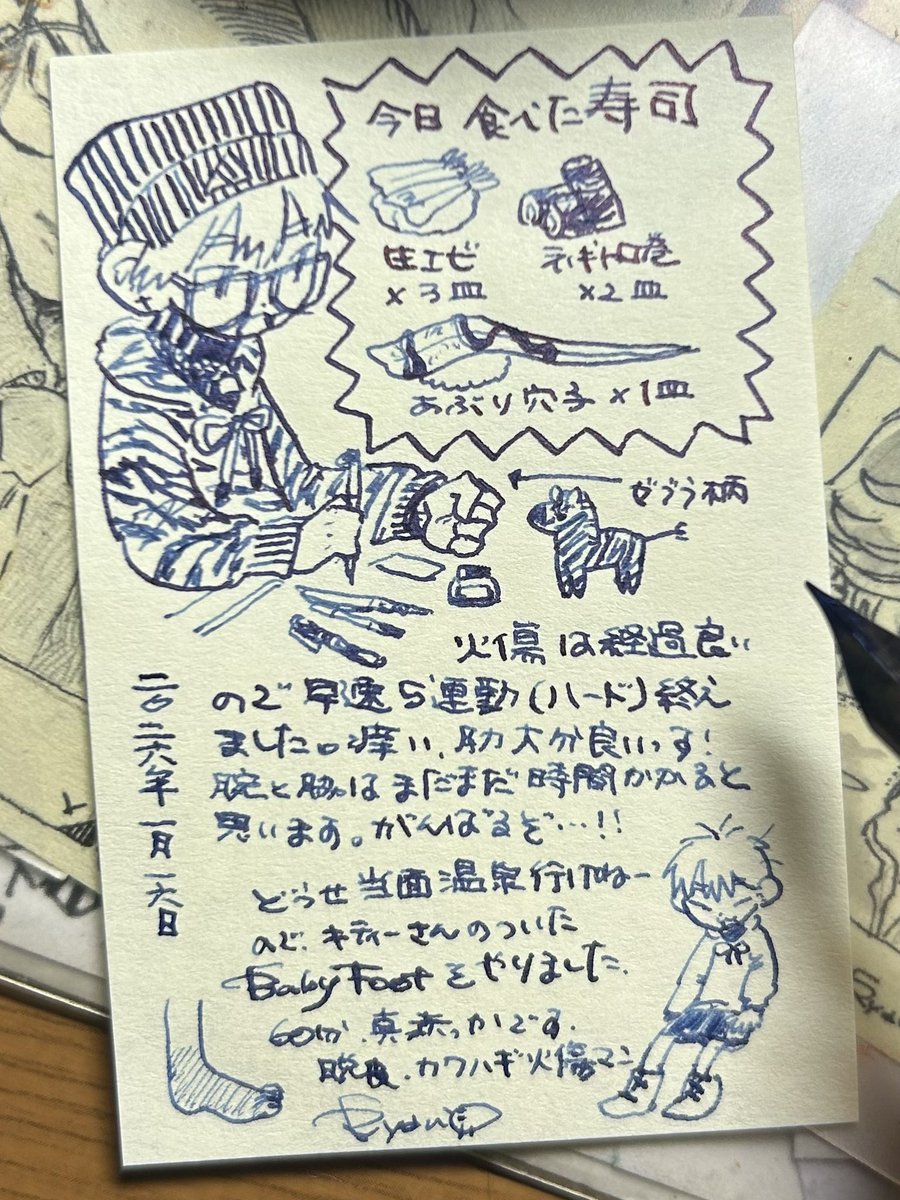 今日食べた寿司
生エビ
×3皿
ネギトロ巻
×2皿
あぶり穴子×1皿
ゼブラ柄
火傷は経過良い
ので早速5運動(ハード)終え
ました。痒い、肋大分良いっす!
腕と脇はまだまだ時間かかると
思います。がんばるぞ…!!
二〇二六年一月一六日
どうせ当面温泉行けねー
ので、キティーさんのついた
Baby Footをやりました。
60分、真赤っかです。
カワハギ火傷マン